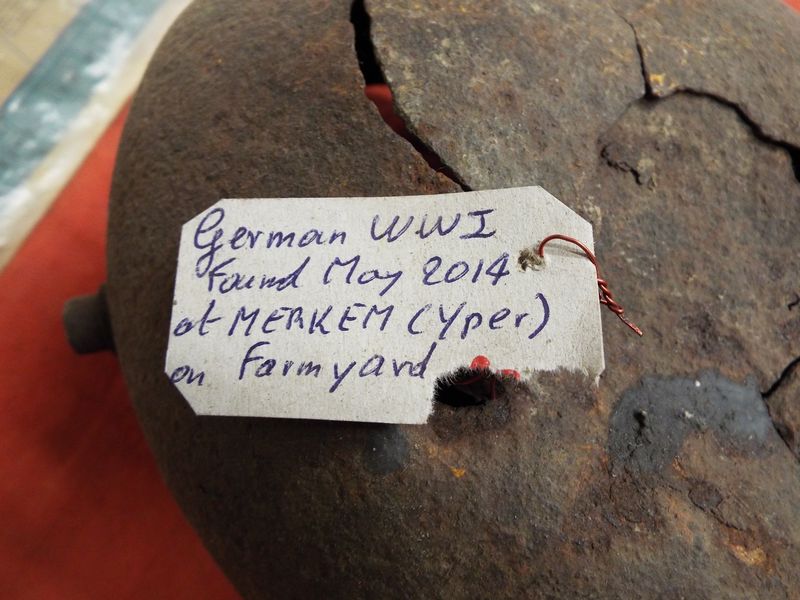 German WWI
Found May 2014
at MERKEM (Yper)
on Farmyard